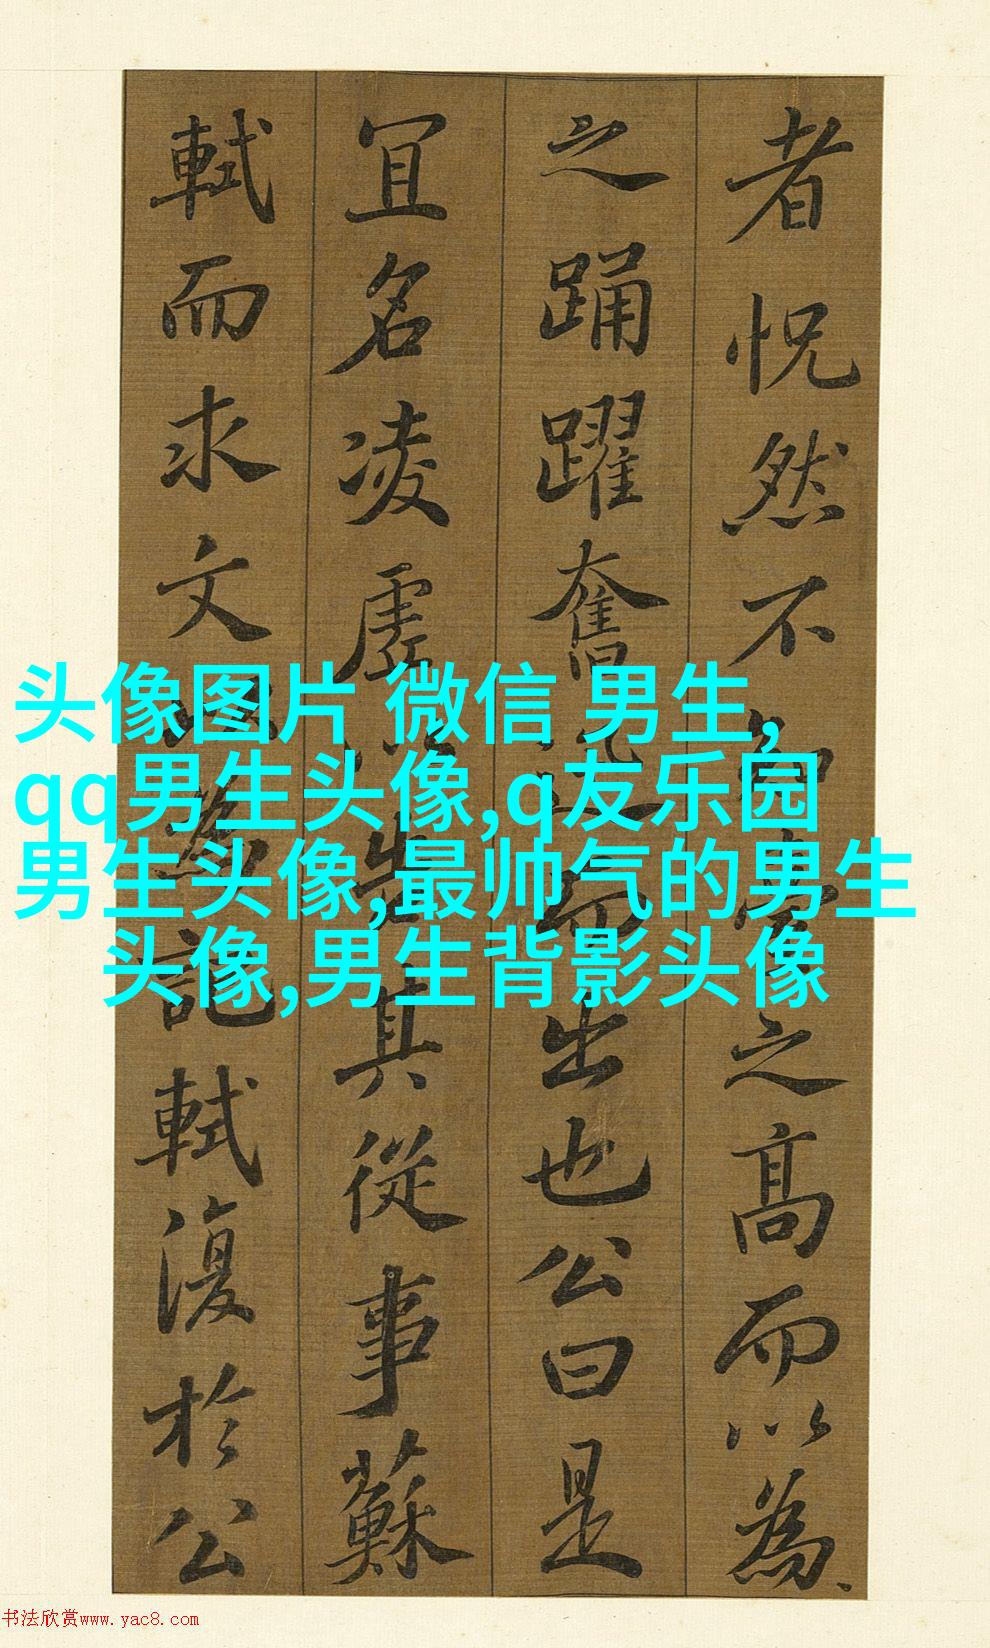 者怳然不知臺之高而以為
之踊躍奮迅而出也公曰是
冝名凌虛以告其從事蘇
軾而求文以為記軾復於公
头像图片 微信 男生,
qq男生头像,q友乐园
男生头像,最帅气的男生
头像,男生背影头像
书法欣赏www.yac8.com